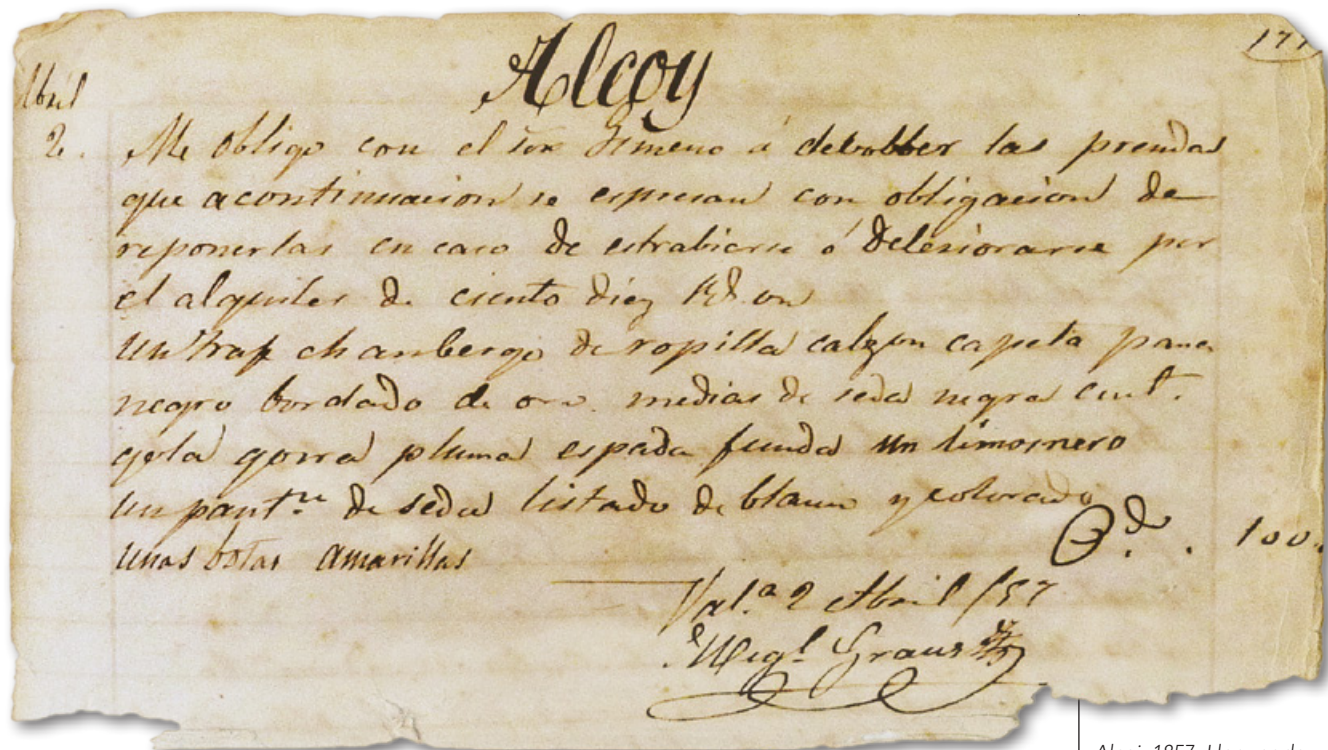 Alcoy
Abril
2. Me obligo con el Sor Gimeno á debolber las prendas
que acontinuacion se espresan con obligacion de
reponerlas en caso de estrabiarse ó Deteriorarse por
el alquiler de ciento diez Rs. von
un traje chambergo de ropilla calzon capeta pana
negro bordado de oro medias de seda negra cint.
gola gorra pluma espada funda un limosnero
un pant.n de seda listado de blanco y colorado
unas botas amarillas
100
Val.a 2 Abril /57
Migl. Graus